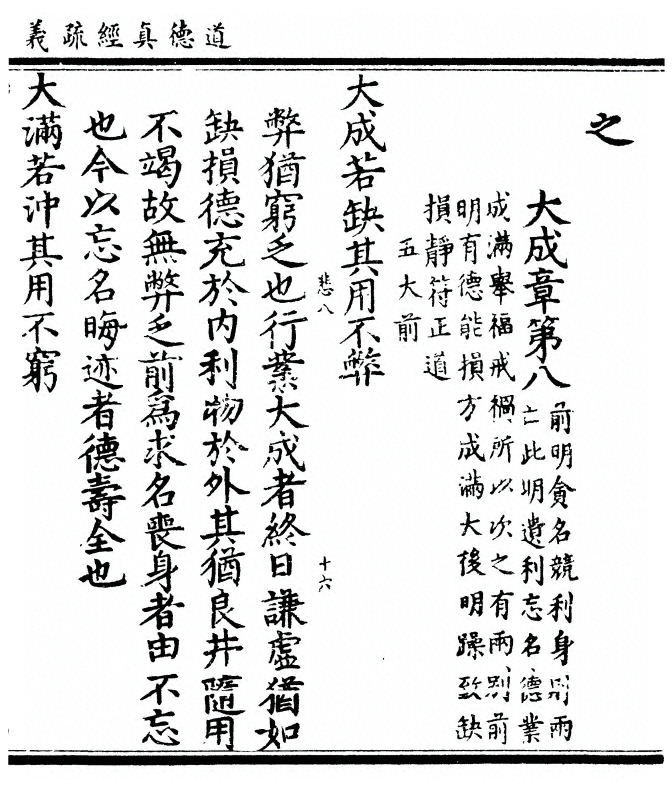 道德真經疏義
之
大成章第八
前明貪名競利身別兩
亡此明遺利忘名德業
成滿舉福戒禍所以次之有兩別前
明有德能損方成滿大後明躁致缺
損靜符正道
五大前
大成若缺其用不弊
悲八
十六
弊猶窮乏也行業大成者終日謙虛猶如
缺損德充於内利物於外其猶良井隨用
不竭故無弊乏前為求名喪身者由不忘
也今以忘名晦迹者德壽全也
大滿若沖其用不窮